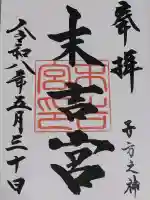 奉拝
子方之神
末吉宮
令和八年五月三十日